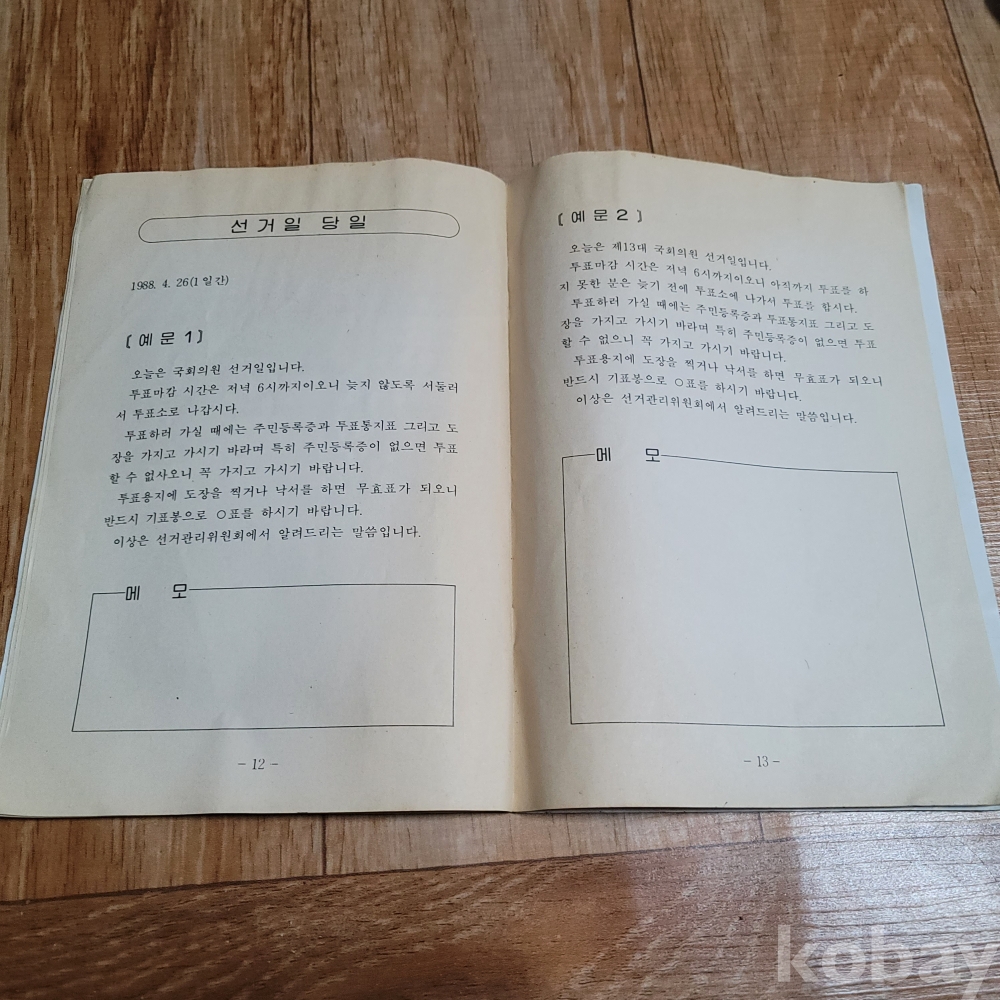 선거일 당일
1988. 4. 26(1일간)
〔예문1〕
오늘은 국회의원 선거일입니다.
투표마감 시간은 저녁 6시까지이오니 늦지 않도록 서둘러
서 투표소로 나갑시다.
투표하러 가실 때에는 주민등록증과 투표통지표 그리고 도
장을 가지고 가시기 바라며 특히 주민등록증이 없으면 투표
할 수 없사오니 꼭 가지고 가시기 바랍니다.
투표용지에 도장을 찍거나 낙서를 하면 무효표가 되오니
반드시 기표봉으로 ○표를 하시기 바랍니다.
이상은 선거관리위원회에서 알려드리는 말씀입니다.
메 모
- 12 -
〔예문2〕
오늘은 제13대 국회의원 선거일입니다.
투표마감 시간은 저녁 6시까지이오니 아직까지 투표를 하
지 못한 분은 늦기 전에 투표소에 나가서 투표를 합시다.
투표하러 가실 때에는 주민등록증과 투표통지표 그리고 도
장을 가지고 가시기 바라며 특히 주민등록증이 없으면 투표
할 수 없으니 꼭 가지고 가시기 바랍니다.
투표용지에 도장을 찍거나 낙서를 하면 무효표가 되오니
반드시 기표봉으로 ○표를 하시기 바랍니다.
이상은 선거관리위원회에서 알려드리는 말씀입니다.
메 모
- 13 -
kobay